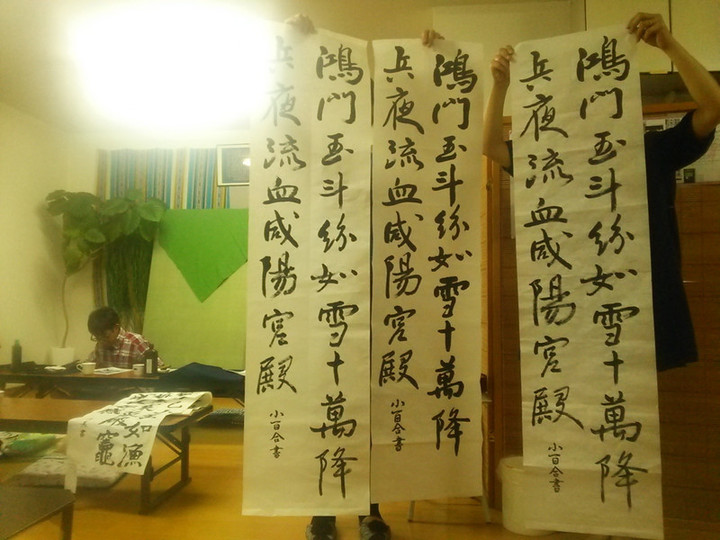 鴻門玉斗紛如雪十萬降
兵夜流血咸陽宮殿
小百合書
鴻門玉斗紛如雪十萬降
兵夜流血咸陽宮殿
小百合書
鴻門玉斗紛如雪十萬降
兵夜流血咸陽宮殿
小百合書